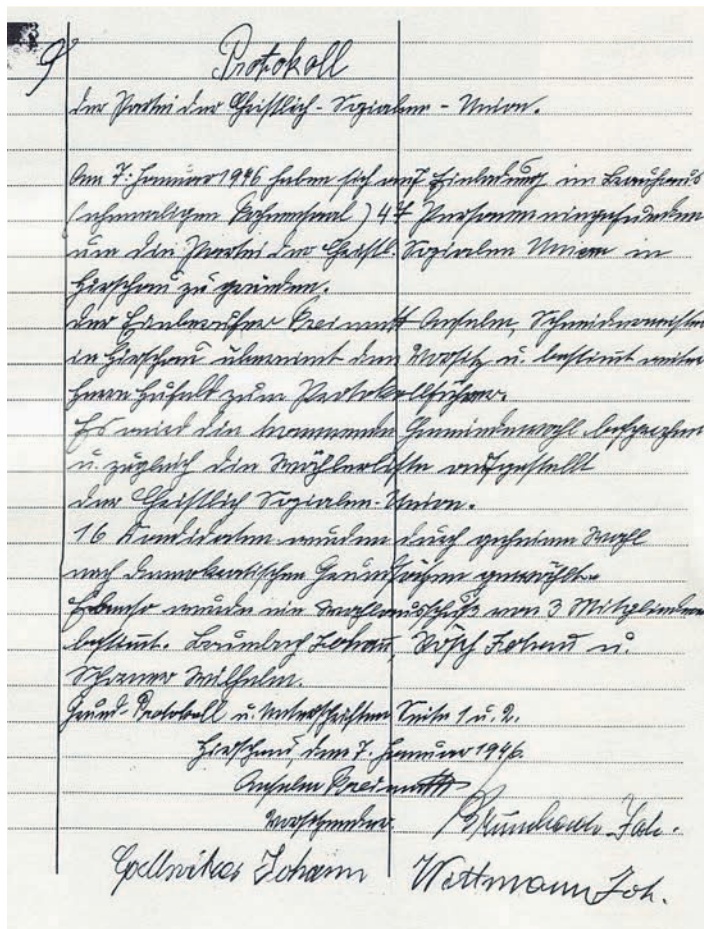 Protokoll
der Partei der Christlich-Sozialen-Union.
Am 7. Januar 1946 haben sich auf Einladung im Brauhaus
(ehemaligen Rahnensaal) 47 Personen eingefunden
um die Partei der Christl. Sozialen Union in
Hirschau zu gründen.
Der Einberufer Anselm, Schneidermeister
in Hirschau übernimt den Vorsitz u. bestimt weiter
Herrn Hufeld zum Protokollführer.
Es wird die kommende Gemeindewahl besprochen
u. zugleich die Wählerliste aufgestellt
der Christlich Sozialen-Union.
16 Kandidaten wurden durch geheime Wahl
nach demokratischen Grundsätzen gewählt.
Ebenso wurde ein Wahlausschuß von 3 Mitgliedern
bestimt. Baumbach Johann, Rösch Johann u.
Wilhelm.
Grund-Protokoll u. Unterschriften Seite 1 u. 2.
Hirschau, den 7. Januar 1946.
Anselm
Vorsitzender. Joh.
Johann Wittmann Joh.